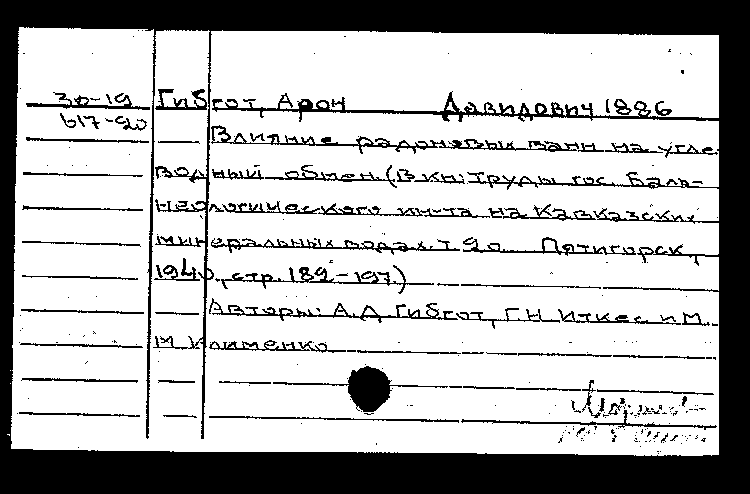 30-19 Гибгот, Арон Давидович 1886
617-20
Влияние радоновых ванн на угле-
водный обмен. (В кн: Труды гос. Баль-
неологического ин-та на Кавказских
минеральных водах. т. 20. Пятигорск,
1940, стр. 189-197.)
Авторы: А.Д. Гибгот, Г.Н. Иткес и М.
М. Клименко